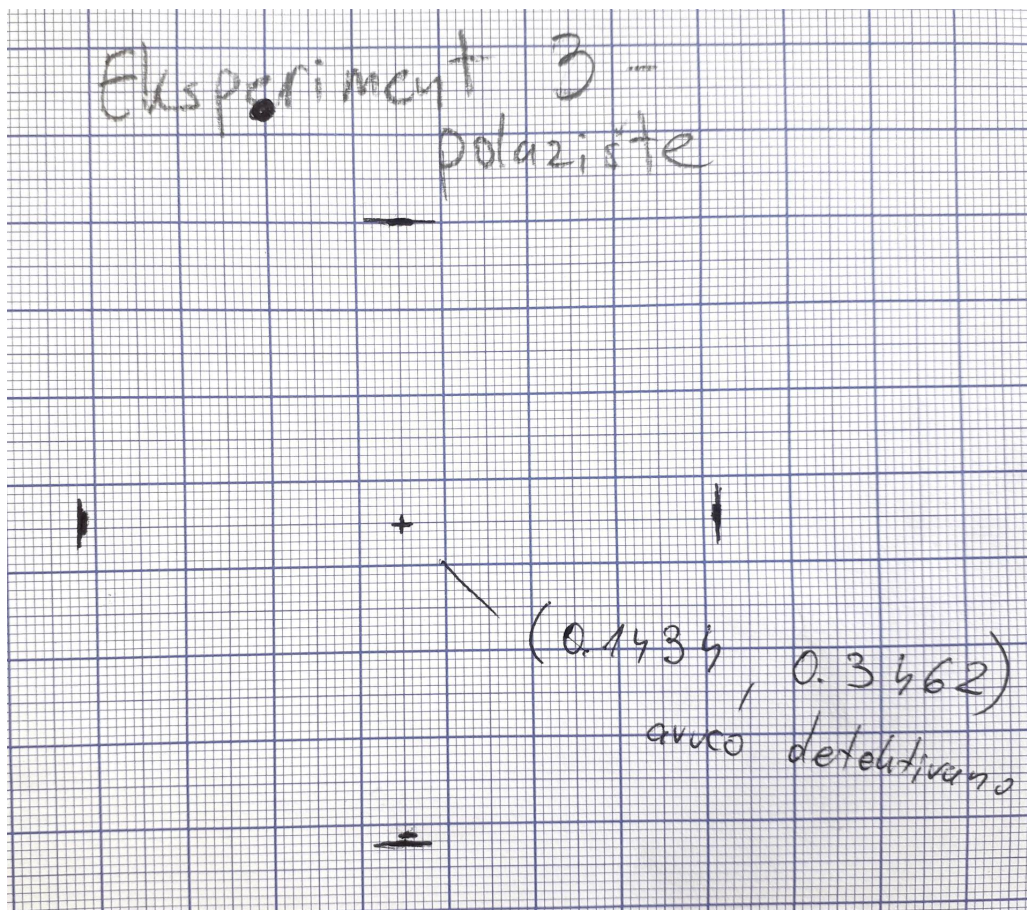 Eksperiment 3 -
polazište
(0.1434, 0.3462)
aruco detektirano